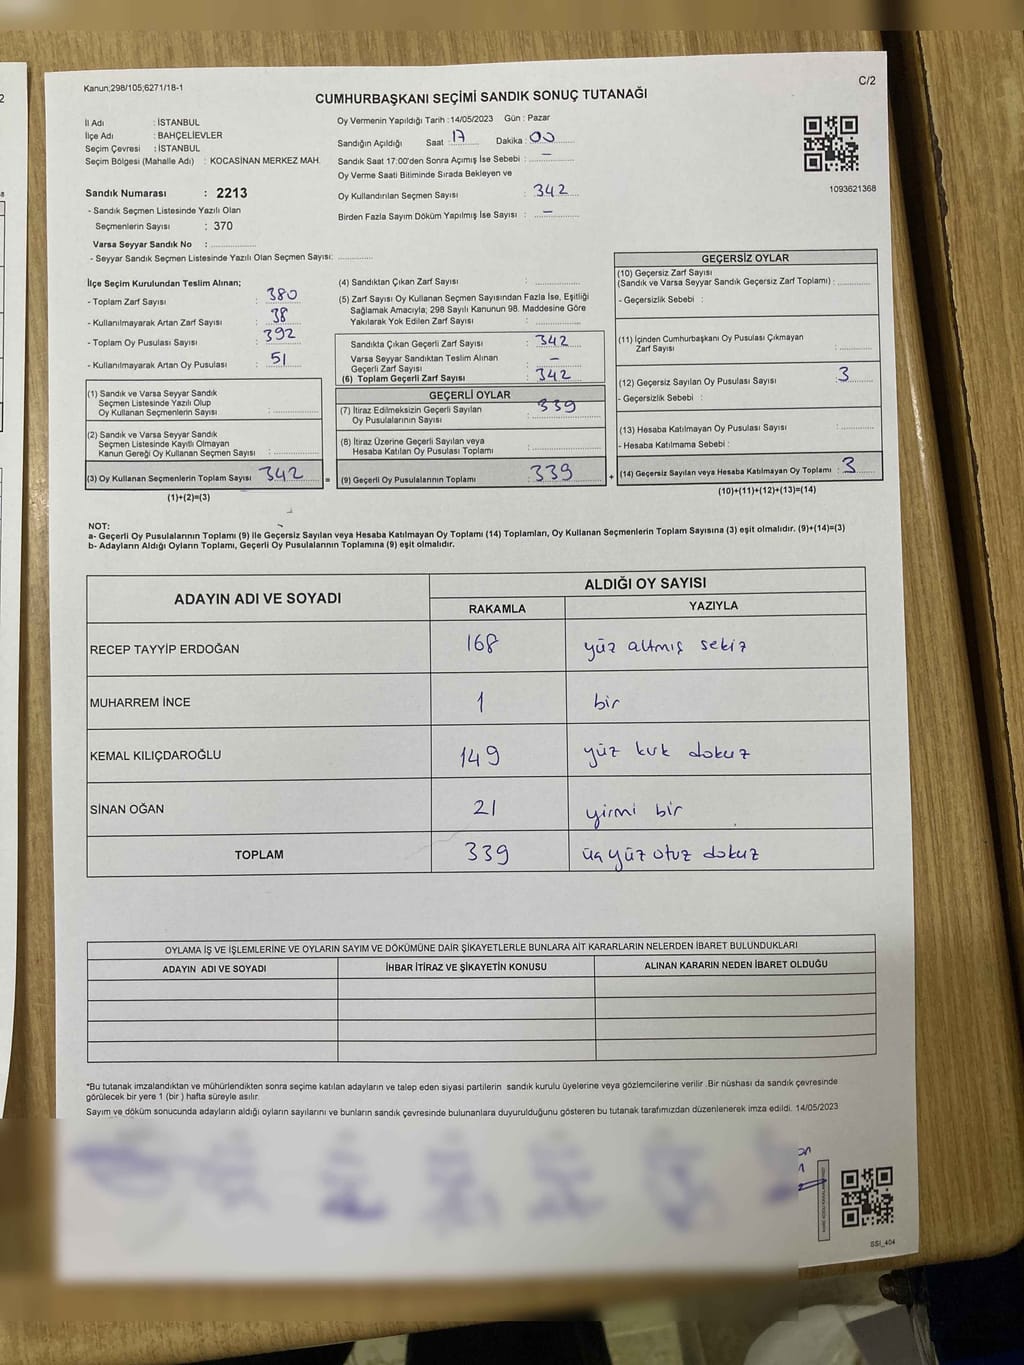 Kanun;298/105;6271/18-1
C/2
CUMHURBAŞKANI SEÇİMİ SANDIK SONUÇ TUTANAĞI
İl Adı : İSTANBUL
İlçe Adı : BAHÇELİEVLER
Seçim Çevresi : İSTANBUL
Seçim Bölgesi (Mahalle Adı) : KOCASİNAN MERKEZ MAH.
Sandık Numarası : 2213
- Sandık Seçmen Listesinde Yazılı Olan
Seçmenlerin Sayısı : 370
Varsa Seyyar Sandık No :
- Seyyar Sandık Seçmen Listesinde Yazılı Olan Seçmen Sayısı:
Oy Vermenin Yapıldığı Tarih :14/05/2023 Gün : Pazar
Sandığın Açıldığı Saat 17 Dakika : 00
Sandık Saat 17:00'den Sonra Açımış İse Sebebi : —
Oy Verme Saati Bitiminde Sırada Bekleyen ve
Oy Kullandırılan Seçmen Sayısı : 342
Birden Fazla Sayım Döküm Yapılmış İse Sayısı : —
1093621368
İlçe Seçim Kurulundan Teslim Alınan;
- Toplam Zarf Sayısı : 380
- Kullanılmayarak Artan Zarf Sayısı : 38
- Toplam Oy Pusulası Sayısı : 392
- Kullanılmayarak Artan Oy Pusulası : 51
(1) Sandık ve Varsa Seyyar Sandık
Seçmen Listesinde Yazılı Olup
Oy Kullanan Seçmenlerin Sayısı :
(2) Sandık ve Varsa Seyyar Sandık
Seçmen Listesinde Kayıtlı Olmayan
Kanun Gereği Oy Kullanan Seçmen Sayısı :
(3) Oy Kullanan Seçmenlerin Toplam Sayısı : 342
(1)+(2)=(3)
(4) Sandıktan Çıkan Zarf Sayısı :
(5) Zarf Sayısı Oy Kullanan Seçmen Sayısından Fazla İse, Eşitliği
Sağlamak Amacıyla; 298 Sayılı Kanunun 98. Maddesine Göre
Yakılarak Yok Edilen Zarf Sayısı :
Sandıkta Çıkan Geçerli Zarf Sayısı : 342
Varsa Seyyar Sandıktan Teslim Alınan
Geçerli Zarf Sayısı : —
(6) Toplam Geçerli Zarf Sayısı : 342
GEÇERLİ OYLAR
(7) İtiraz Edilmeksizin Geçerli Sayılan
Oy Pusulalarının Sayısı : 339
(8) İtiraz Üzerine Geçerli Sayılan veya
Hesaba Katılan Oy Pusulası Toplamı :
= (9) Geçerli Oy Pusulalarının Toplamı : 339
GEÇERSİZ OYLAR
(10) Geçersiz Zarf Sayısı
(Sandık ve Varsa Seyyar Sandık Geçersiz Zarf Toplamı) :
- Geçersizlik Sebebi :
(11) İçinden Cumhurbaşkanı Oy Pusulası Çıkmayan
Zarf Sayısı :
(12) Geçersiz Sayılan Oy Pusulası Sayısı : 3
- Geçersizlik Sebebi :
(13) Hesaba Katılmayan Oy Pusulası Sayısı :
- Hesaba Katılmama Sebebi :
+ (14) Geçersiz Sayılan veya Hesaba Katılmayan Oy Toplamı : 3
(10)+(11)+(12)+(13)=(14)
NOT:
a- Geçerli Oy Pusulalarının Toplamı (9) İle Geçersiz Sayılan veya Hesaba Katılmayan Oy Toplamı (14) Toplamları, Oy Kullanan Seçmenlerin Toplam Sayısına (3) eşit olmalıdır. (9)+(14)=(3)
b- Adayların Aldığı Oyların Toplamı, Geçerli Oy Pusulalarının Toplamına (9) eşit olmalıdır.
ADAYIN ADI VE SOYADI
ALDIĞI OY SAYISI
RAKAMLA YAZIYLA
RECEP TAYYİP ERDOĞAN 168 yüz altmış sekiz
MUHARREM İNCE 1 bir
KEMAL KILIÇDAROĞLU 149 yüz kırk dokuz
SİNAN OĞAN 21 yirmi bir
TOPLAM 339 üç yüz otuz dokuz
OYLAMA İŞ VE İŞLEMLERİNE VE OYLARIN SAYIM VE DÖKÜMÜNE DAİR ŞİKAYETLERLE BUNLARA AİT KARARLARIN NELERDEN İBARET BULUNDUKLARI
ADAYIN ADI VE SOYADI İHBAR İTİRAZ VE ŞİKAYETİN KONUSU ALINAN KARARIN NEDEN İBARET OLDUĞU
*Bu tutanak imzalandıktan ve mühürlendikten sonra seçime katılan adayların ve talep eden siyasi partilerin sandık kurulu üyelerine veya gözlemcilerine verilir .Bir nüshası da sandık çevresinde
görülecek bir yere 1 (bir ) hafta süreyle asılır.
Sayım ve döküm sonucunda adayların aldığı oyların sayılarını ve bunların sandık çevresinde bulunanlara duyurulduğunu gösteren bu tutanak tarafımızdan düzenlenerek imza edildi. 14/05/2023
SSI_404